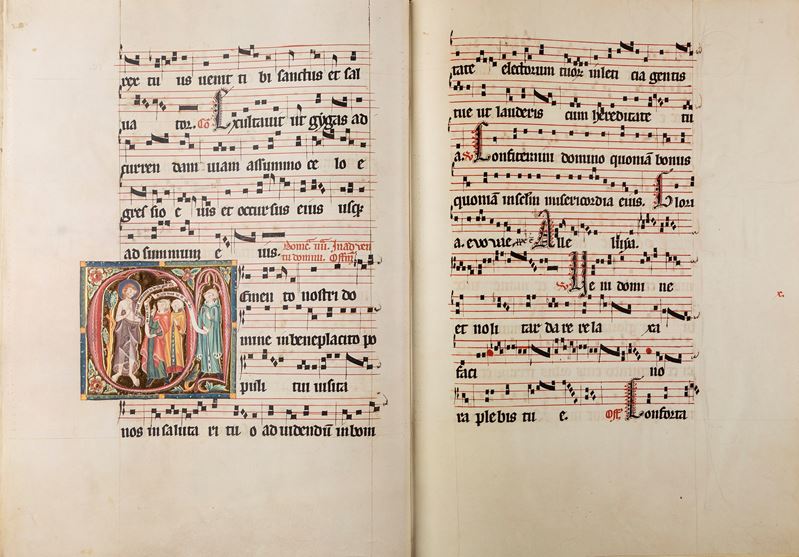 rex tu us uenit ti bi sanctus et sal
ua tor. Cō Exultauit ut gygas ad
curren dam uiam assummo ce lo e
gres sio e ius et occursus eius usq;
ad summum e ius.
emen to nostri do
mine inbeneplacito po
puli tui uisita
nos insaluta ri tu o ad uidendū inboni
tate electorum tuor inleti cia gentis
tue ut lauderis cum hereditate tu
a. Confitemini domino quoniā bonus
quoniam misericordia eius. Glori
a. Alle luia.
Ve ni domi ne
et noli tar da re re la xa
faci no
ra plebis tu e. Off. Conforta
r.